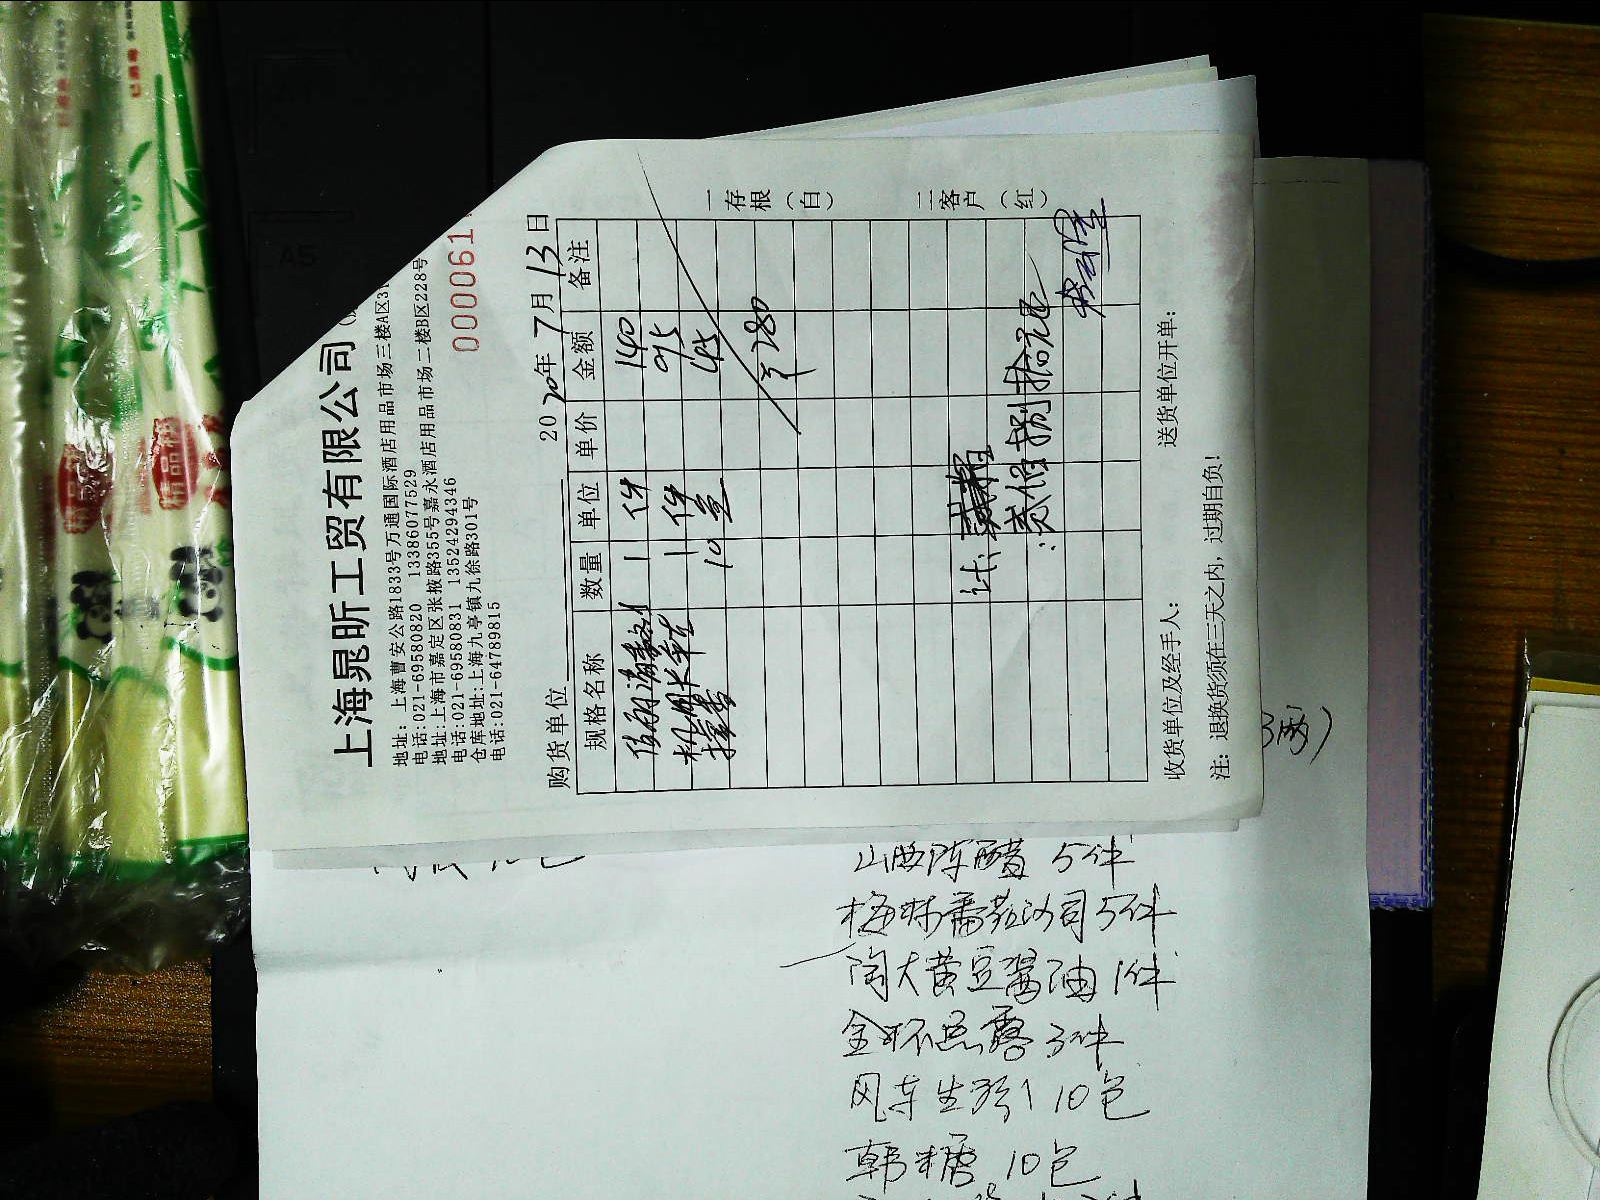 上海晁昕工贸有限公司
地址: 上海曹安公路1833号万通国际酒店用品市场三楼A区31
电话:021-69580820 13386077529
地址:上海市嘉定区张掖路355号嘉永酒店用品市场二楼B区228号
电话:021-69580831 13524294346
仓库地址:上海九亭镇九徐路301号
电话:021-64789815
000061
购货单位 2020年7月13日
规格名称 数量 单位 单价 金额 备注
1 件 140
1 件 95
10 45
280
计:
贰佰捌拾元
一存根(白) 二客户(红)
收货单位及经手人: 送货单位开单:
注: 退换货须在三天之内, 过期自负!
山西陈醋 5件
梅林番茄沙司5件
淘大黄豆酱油 1件
金环 3件
10包
韩糖 10包
精品棉